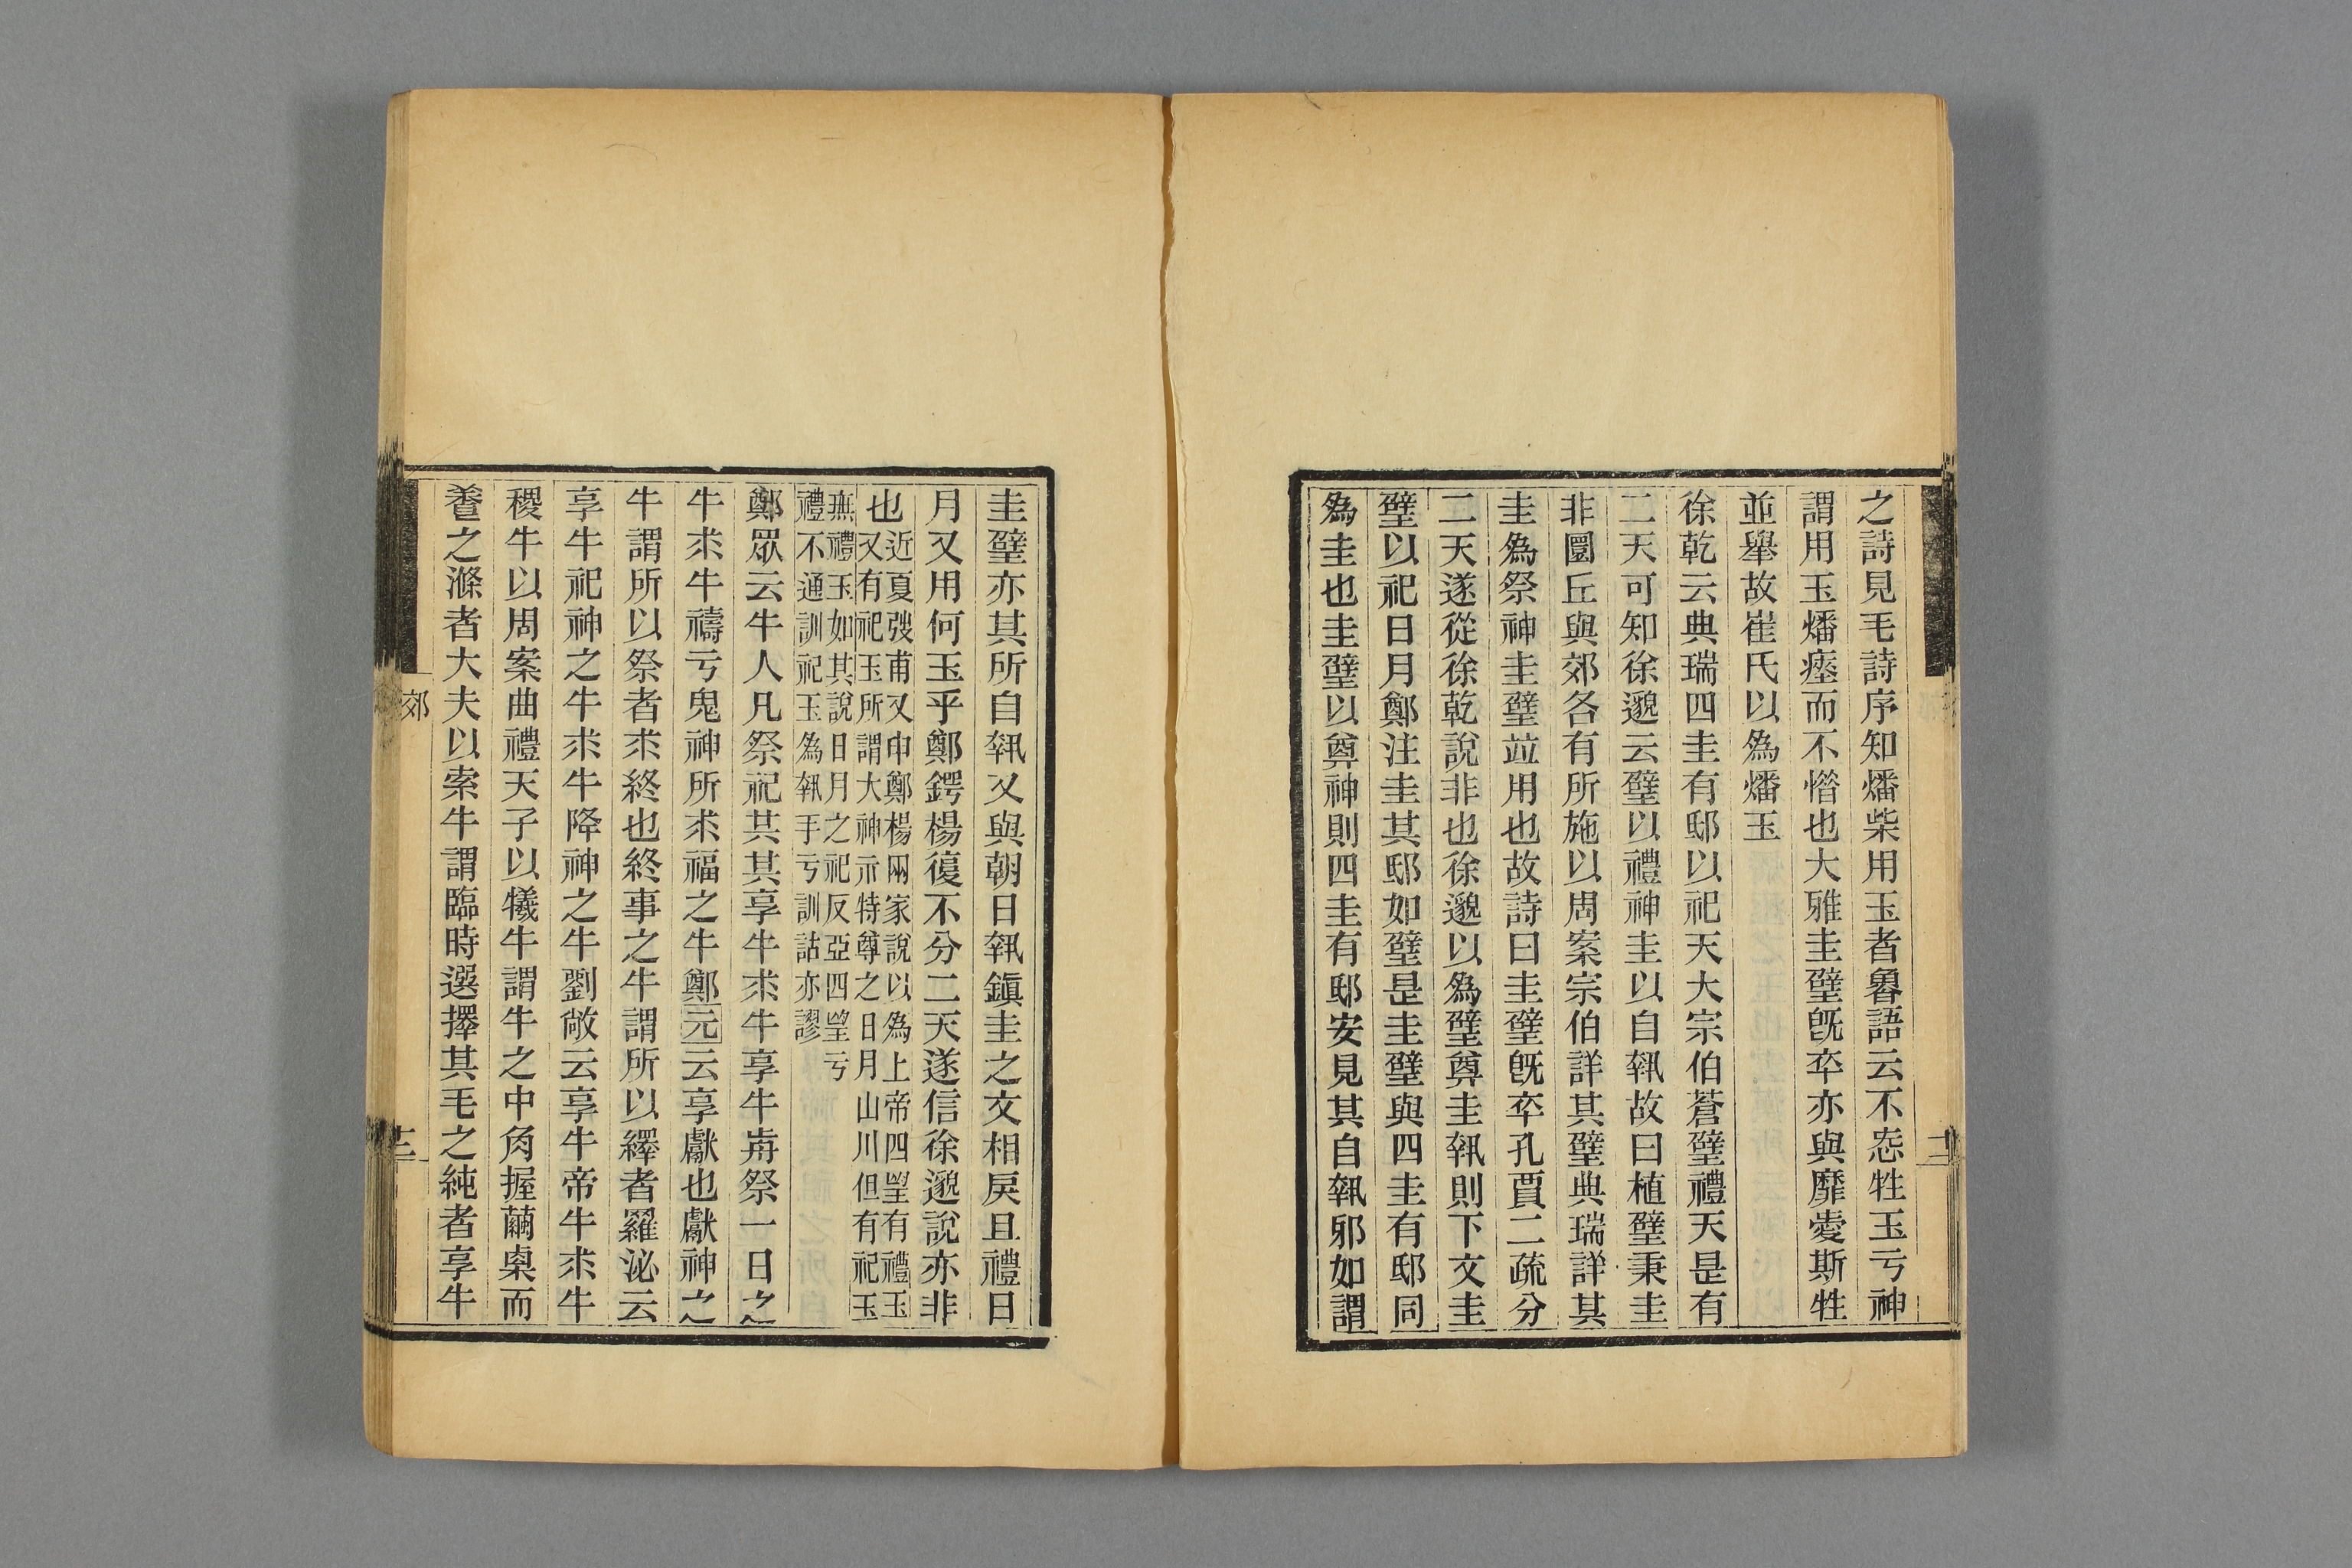 之詩見毛詩序知燔柴用玉者魯語云不㤅牲玉亏神
謂用玉燔瘞而不憯也大雅圭璧旣卒亦與靡愛斯牲
並舉故崔氏以爲燔玉
徐乾云典瑞四圭有邸以祀天大宗伯蒼璧禮天是有
二天可知徐邈云璧以禮神圭以自執故曰植璧秉圭
非圜丘與郊各有所施以周案宗伯詳其璧典瑞詳其
圭爲祭神圭璧竝用也故詩曰圭璧旣卒孔賈二疏分
二天遂從徐乾說非也徐邈以爲璧奠圭執則下文圭
璧以祀日月鄭注圭其邸如璧是圭璧與四圭有邸同
爲圭也圭璧以奠神則四圭有邸安見其自執邪如謂
圭璧亦其所自執又與朝日執鎭圭之文相戾且禮日
月又用何玉乎鄭鍔楊復不分二天遂信徐邈說亦非
也近夏弢甫又申鄭楊兩家說以爲上帝四朢有禮玉
又有祀玉所謂大神示特尊之日月山川但有祀玉
無禮玉如其說日月之祀反亞四朢亏
禮不通訓祀玉爲執手亏訓詁亦謬
鄭眾云牛人凡祭祀共其享牛求牛享牛歬祭一日之
牛求牛禱亏鬼神所求福之牛鄭元云享獻也獻神之
牛謂所以祭者求終也終事之牛謂所以繹者羅泌云
享牛祀神之牛求牛降神之牛劉敞云享牛帝牛求牛
稷牛以周案曲禮天子以犧牛謂牛之中角握繭㮚而
養之滌者大夫以索牛謂臨時選擇其毛之純者享牛
郊